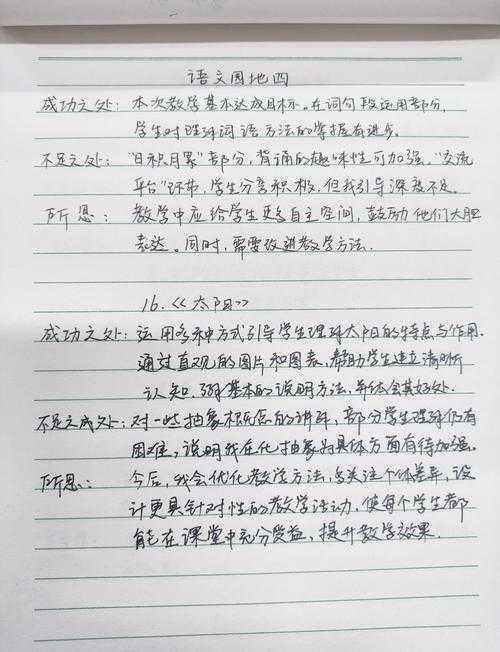 语文园地四
成功之处：本次教学基本达成目标。在词句段运用部分，
学生对理解词语方法的掌握有进步。
不足之处："日积月累"部分，背诵的趣味性可加强。"交流
平台"环节，学生分享积极，但我引导深度不足。
所思：教学中应给学生更多自主空间，鼓励他们大胆
表达。同时，需要改进教学方法.
16.《太阳》
成功之处：运用各种方式引导学生理解太阳的特点与作用.
通过直观的图片和图表，帮助学生建立清晰
认知.了解基本的说明方法，并体会其好处.
不足之成处：对一些抽象概念的讲解，部分学生理解仍有
困难，说明我在化抽象为具体方面有待加强。
所思：今后，我会优化教学方法，多关注个体差异，设
计更具针对性的教学活动，使每个学生都
能在课堂中充分受益，提升教学效果.